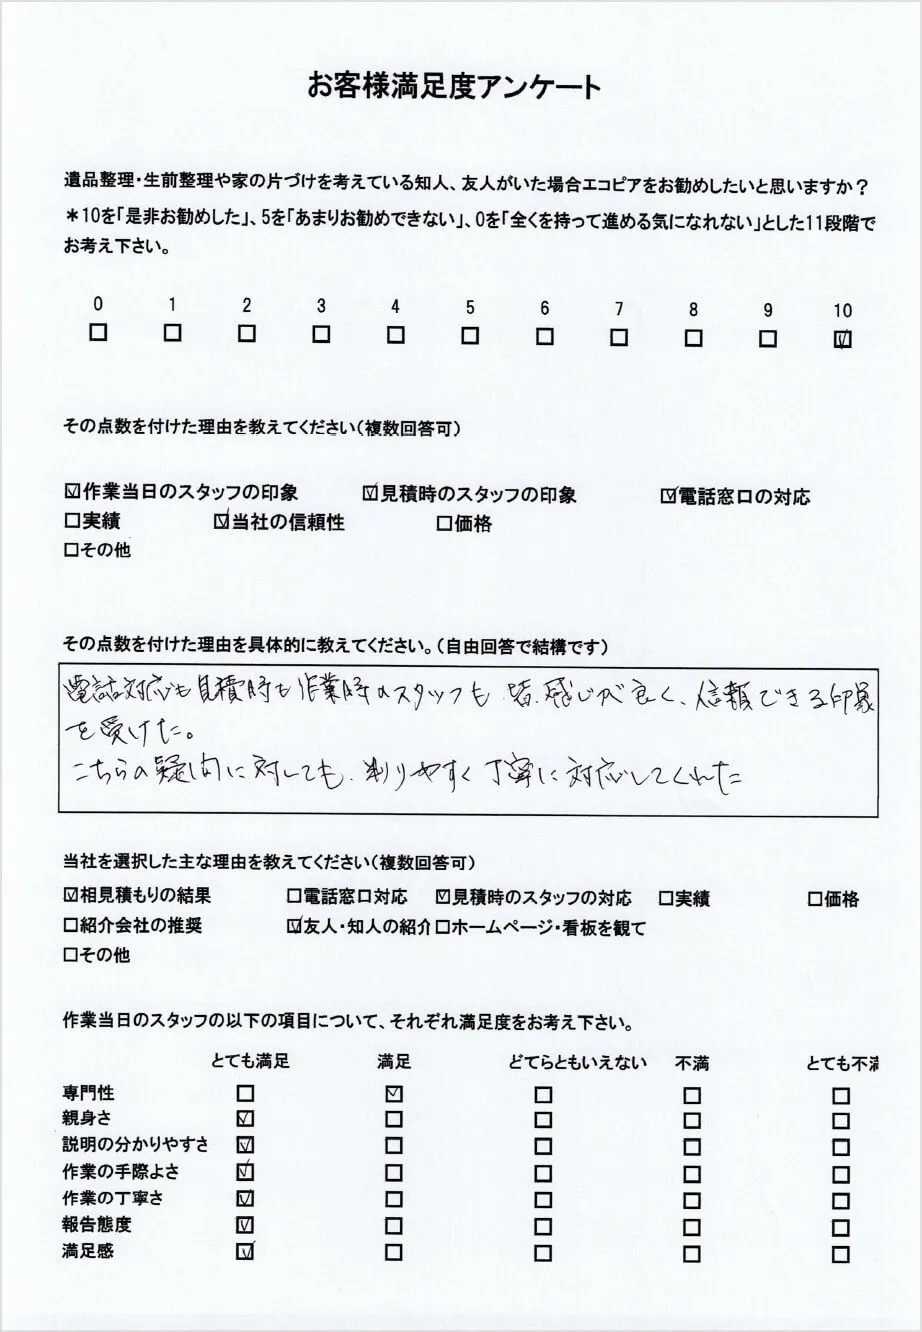 お客様満足度アンケート
遺品整理・生前整理や家の片づけを考えている知人、友人がいた場合エコピアをお勧めしたいと思いますか？
＊10を「是非お勧めした」、5を「あまりお勧めできない」、0を「全くを持って進める気になれない」とした11段階で
お考え下さい。
0 1 2 3 4 5 6 7 8 9 10
□ □ □ □ □ □ □ □ □ □ ☑
その点数を付けた理由を教えてください（複数回答可）
☑作業当日のスタッフの印象 ☑見積時のスタッフの印象 ☑電話窓口の対応
□実績 ☑当社の信頼性 □価格
□その他
その点数を付けた理由を具体的に教えてください。（自由回答で結構です）
電話対応も見積時も作業時のスタッフも、皆、感じが良く、信頼できる印象
を受けた。
こちらの疑問に対しても、判りやすく丁寧に対応してくれた
当社を選択した主な理由を教えてください（複数回答可）
☑相見積もりの結果 □電話窓口対応 ☑見積時のスタッフの対応 □実績 □価格
□紹介会社の推奨 ☑友人・知人の紹介 □ホームページ・看板を観て
□その他
作業当日のスタッフの以下の項目について、それぞれ満足度をお考え下さい。
とても満足 満足 どてらともいえない 不満 とても不満
専門性 □ ☑ □ □ □
親身さ ☑ □ □ □ □
説明の分かりやすさ ☑ □ □ □ □
作業の手際よさ ☑ □ □ □ □
作業の丁寧さ ☑ □ □ □ □
報告態度 ☑ □ □ □ □
満足感 ☑ □ □ □ □